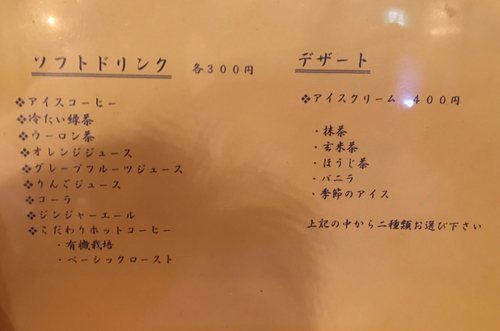 ソフトドリンク 各300円
❖アイスコーヒー
❖冷たい緑茶
❖ウーロン茶
❖オレンジジュース
❖グレープフルーツジュース
❖りんごジュース
❖コーラ
❖ジンジャーエール
❖こだわりホットコーヒー
・有機栽培
・ベーシックロースト
デザート
❖アイスクリーム 400円
・抹茶
・玄米茶
・ほうじ茶
・バニラ
・季節のアイス
上記の中から二種類お選び下さい